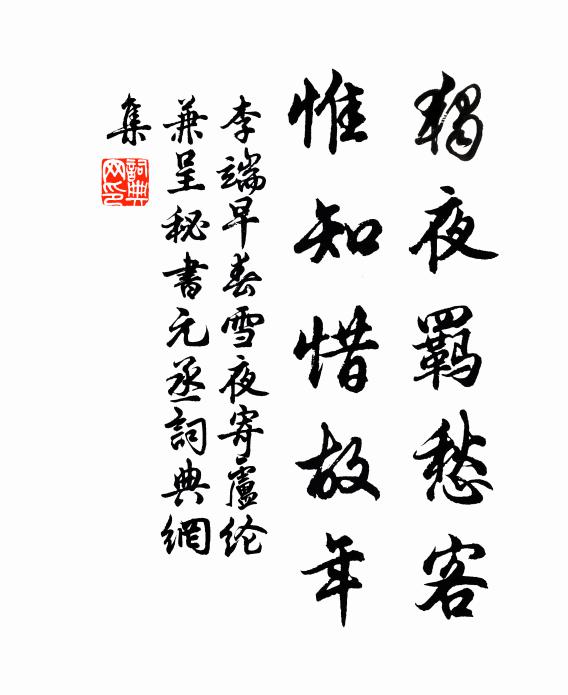 獨夜羈愁客
惟知惜故年
李端早春雪夜寄盧纶
兼呈秘書元丞詞典網
集
詞典
网印